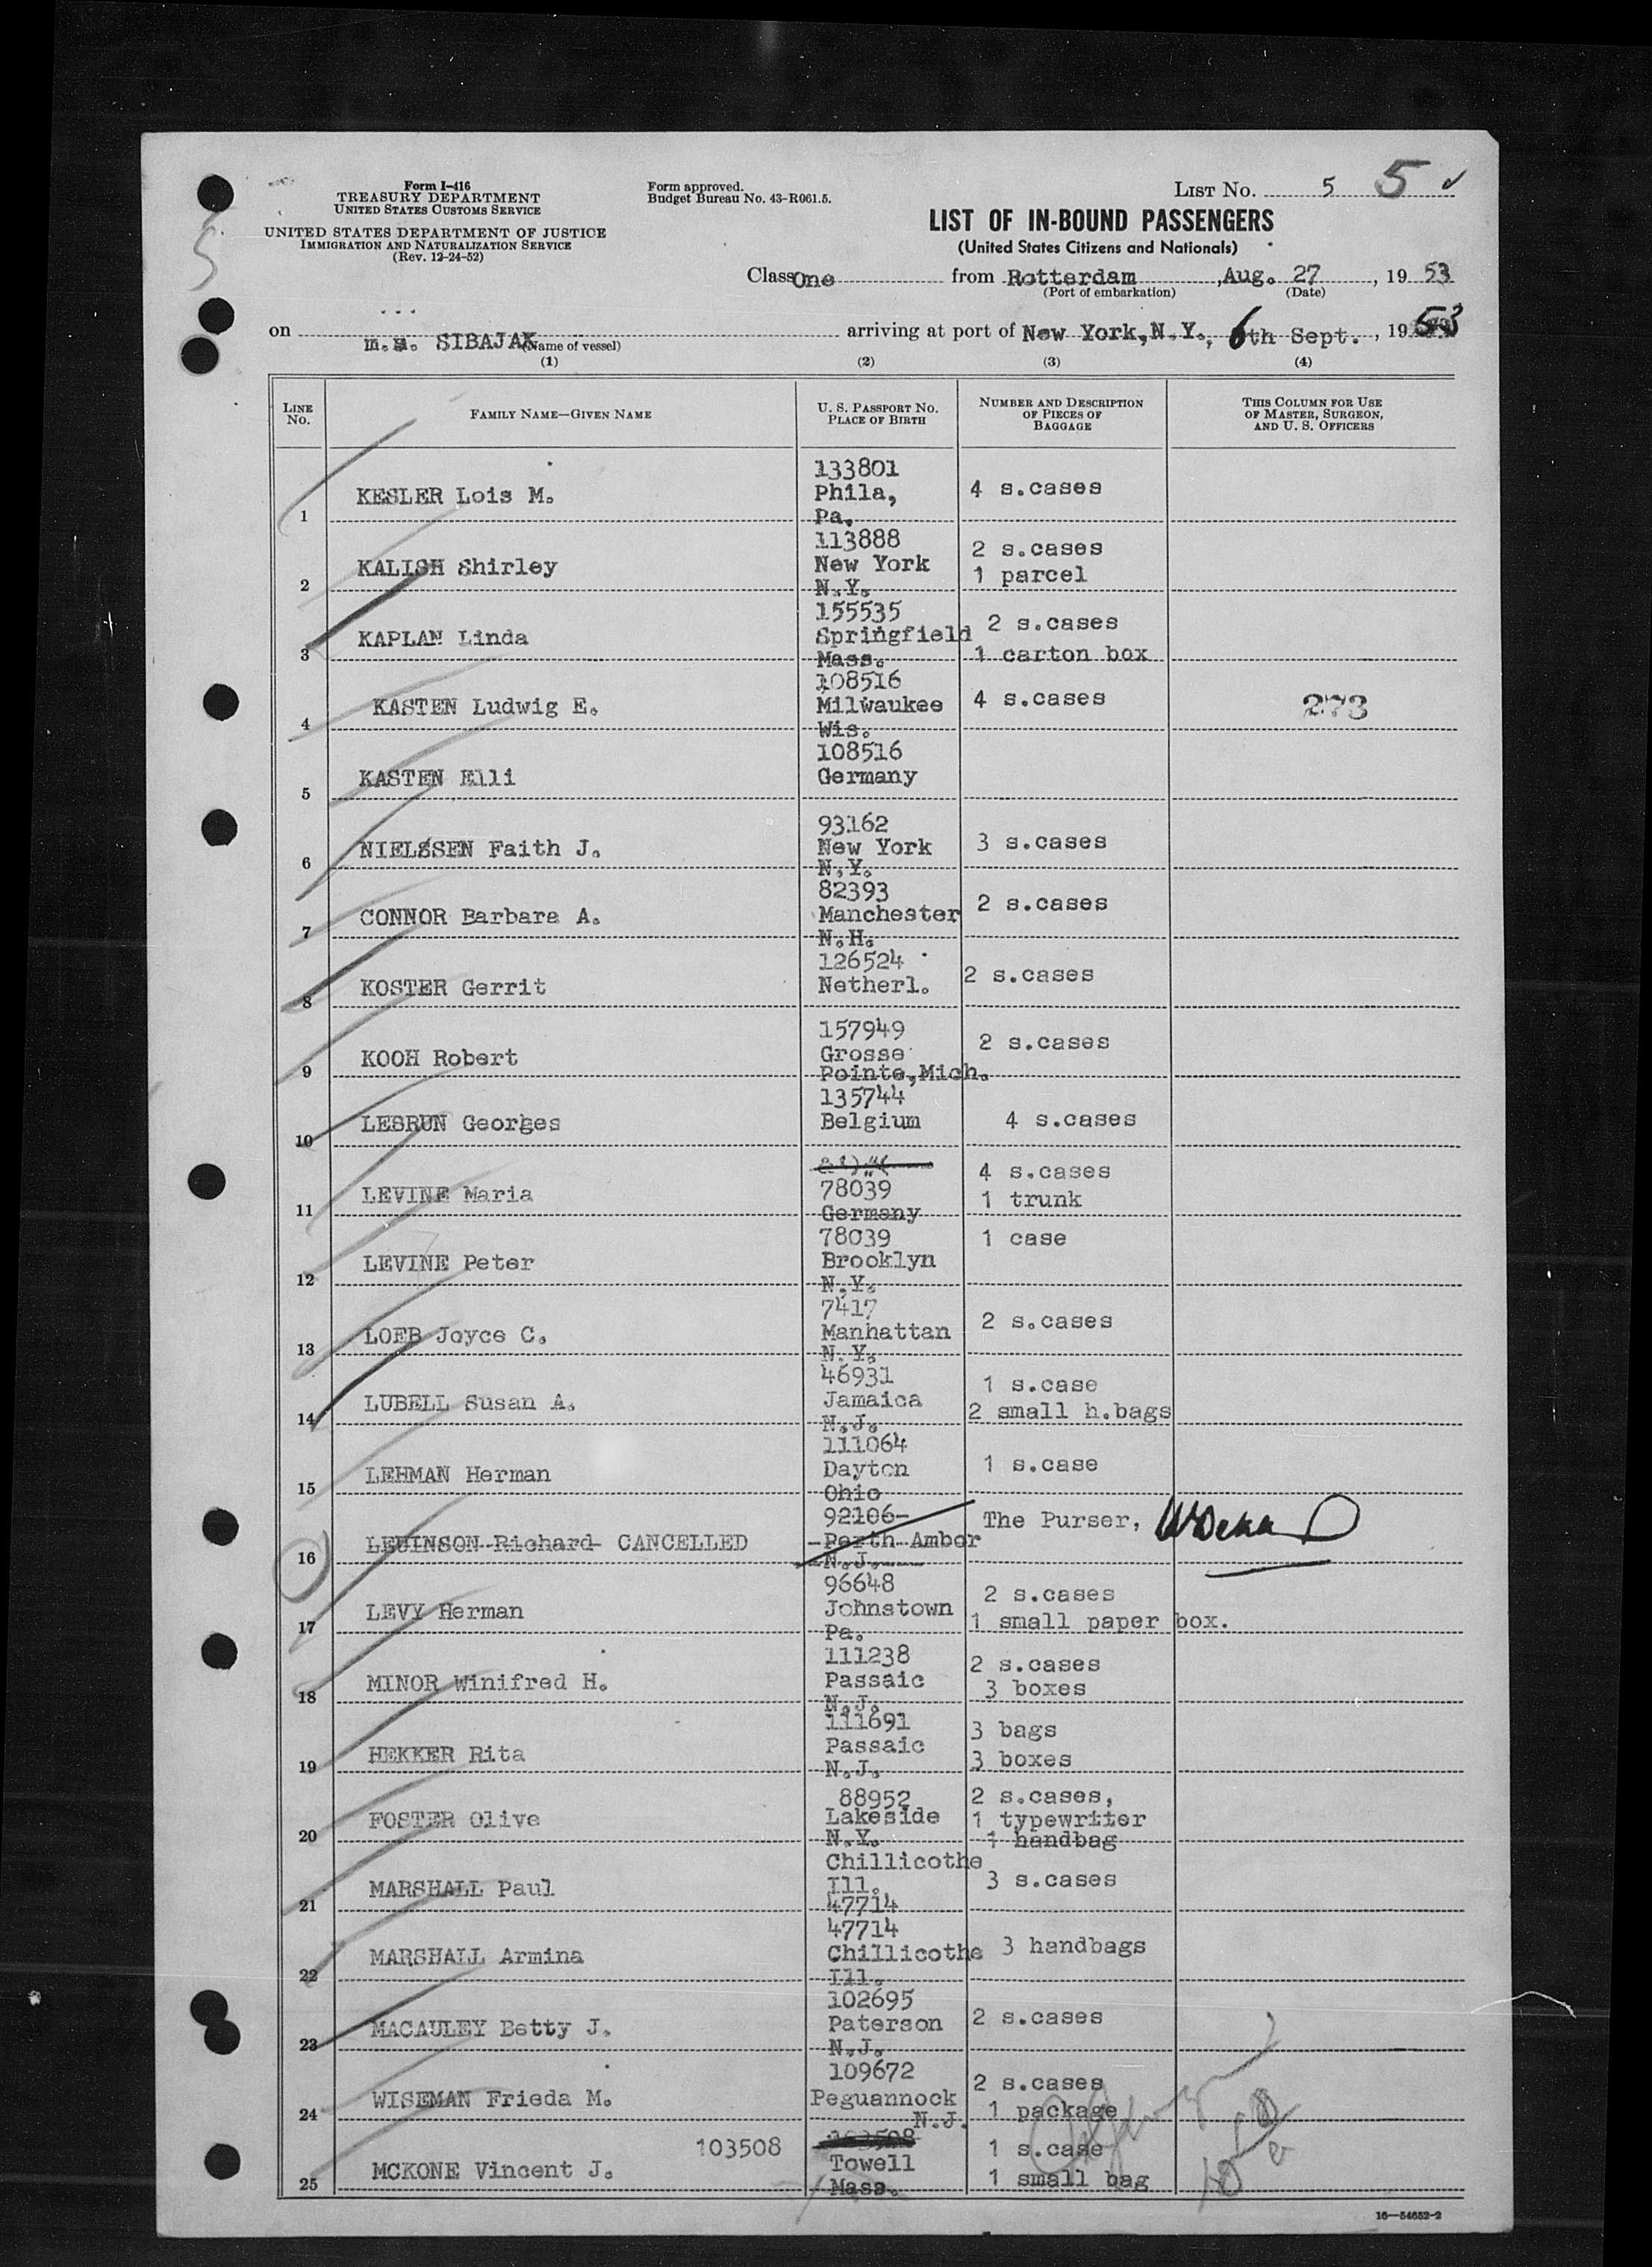 Form I-416
TREASURY DEPARTMENT
UNITED STATES CUSTOMS SERVICE
UNITED STATES DEPARTMENT OF JUSTICE
IMMIGRATION AND NATURALIZATION SERVICE
(Rev. 12-24-52)
Form approved.
Budget Bureau No. 43-R061.5.
LIST No. 5 5
LIST OF IN-BOUND PASSENGERS
(United States Citizens and Nationals)
Class One from Rotterdam, Aug. 27, 1953
(Port of embarkation) (Date)
on m.s. SIBAJAK arriving at port of New York, N.Y., 6th Sept., 1953
(Name of vessel)
(1) (2) (3) (4)
LINE No. FAMILY NAME—GIVEN NAME U. S. PASSPORT No. PLACE OF BIRTH NUMBER AND DESCRIPTION OF PIECES OF BAGGAGE THIS COLUMN FOR USE OF MASTER, SURGEON, AND U. S. OFFICERS
1 KESLER Lois M. 133801 Phila, Pa. 4 s.cases
2 KALISH Shirley 113888 New York N.Y. 2 s.cases 1 parcel
3 KAPLAN Linda 155535 Springfield Mass. 2 s.cases 1 carton box
4 KASTEN Ludwig E. 108516 Milwaukee Wis. 4 s.cases 273
5 KASTEN Elli 108516 Germany
6 NIELSSEN Faith J. 93162 New York N.Y. 3 s.cases
7 CONNOR Barbara A. 82393 Manchester N.H. 2 s.cases
8 KOSTER Gerrit 126524 Netherl. 2 s.cases
9 KOOH Robert 157949 Grosse Pointe,Mich. 2 s.cases
10 LEBRUN Georges 135744 Belgium 4 s.cases
11 LEVINE Maria 78039 Germany 4 s.cases 1 trunk
12 LEVINE Peter 78039 Brooklyn N.Y. 1 case
13 LOEB Joyce C. 7417 Manhattan N.Y. 2 s.cases
14 LUBELL Susan A. 46931 Jamaica N.J. 1 s.case 2 small h.bags
15 LEHMAN Herman 111064 Dayton Ohio 1 s.case
16 LEUINSON Richard CANCELLED 92106 Perth Ambor N.J. The Purser,
17 LEVY Herman 96648 Johnstown Pa. 2 s.cases 1 small paper box.
18 MINOR Winifred H. 111238 Passaic N.J. 2 s.cases 3 boxes
19 HEKKER Rita 111691 Passaic N.J. 3 bags 3 boxes
20 FOSTER Olive 88952 Lakeside N.Y. 2 s.cases, 1 typewriter 1 handbag
21 MARSHALL Paul Chillicothe Ill. 47714 3 s.cases
22 MARSHALL Armina 47714 Chillicothe Ill. 3 handbags
23 MACAULEY Betty J. 102695 Paterson N.J. 2 s.cases
24 WISEMAN Frieda M. 109672 Peguannock N.J. 2 s.cases 1 package
25 MCKONE Vincent J. 103508 103508 Towell Mass. 1 s.case 1 small bag
16—54652-2